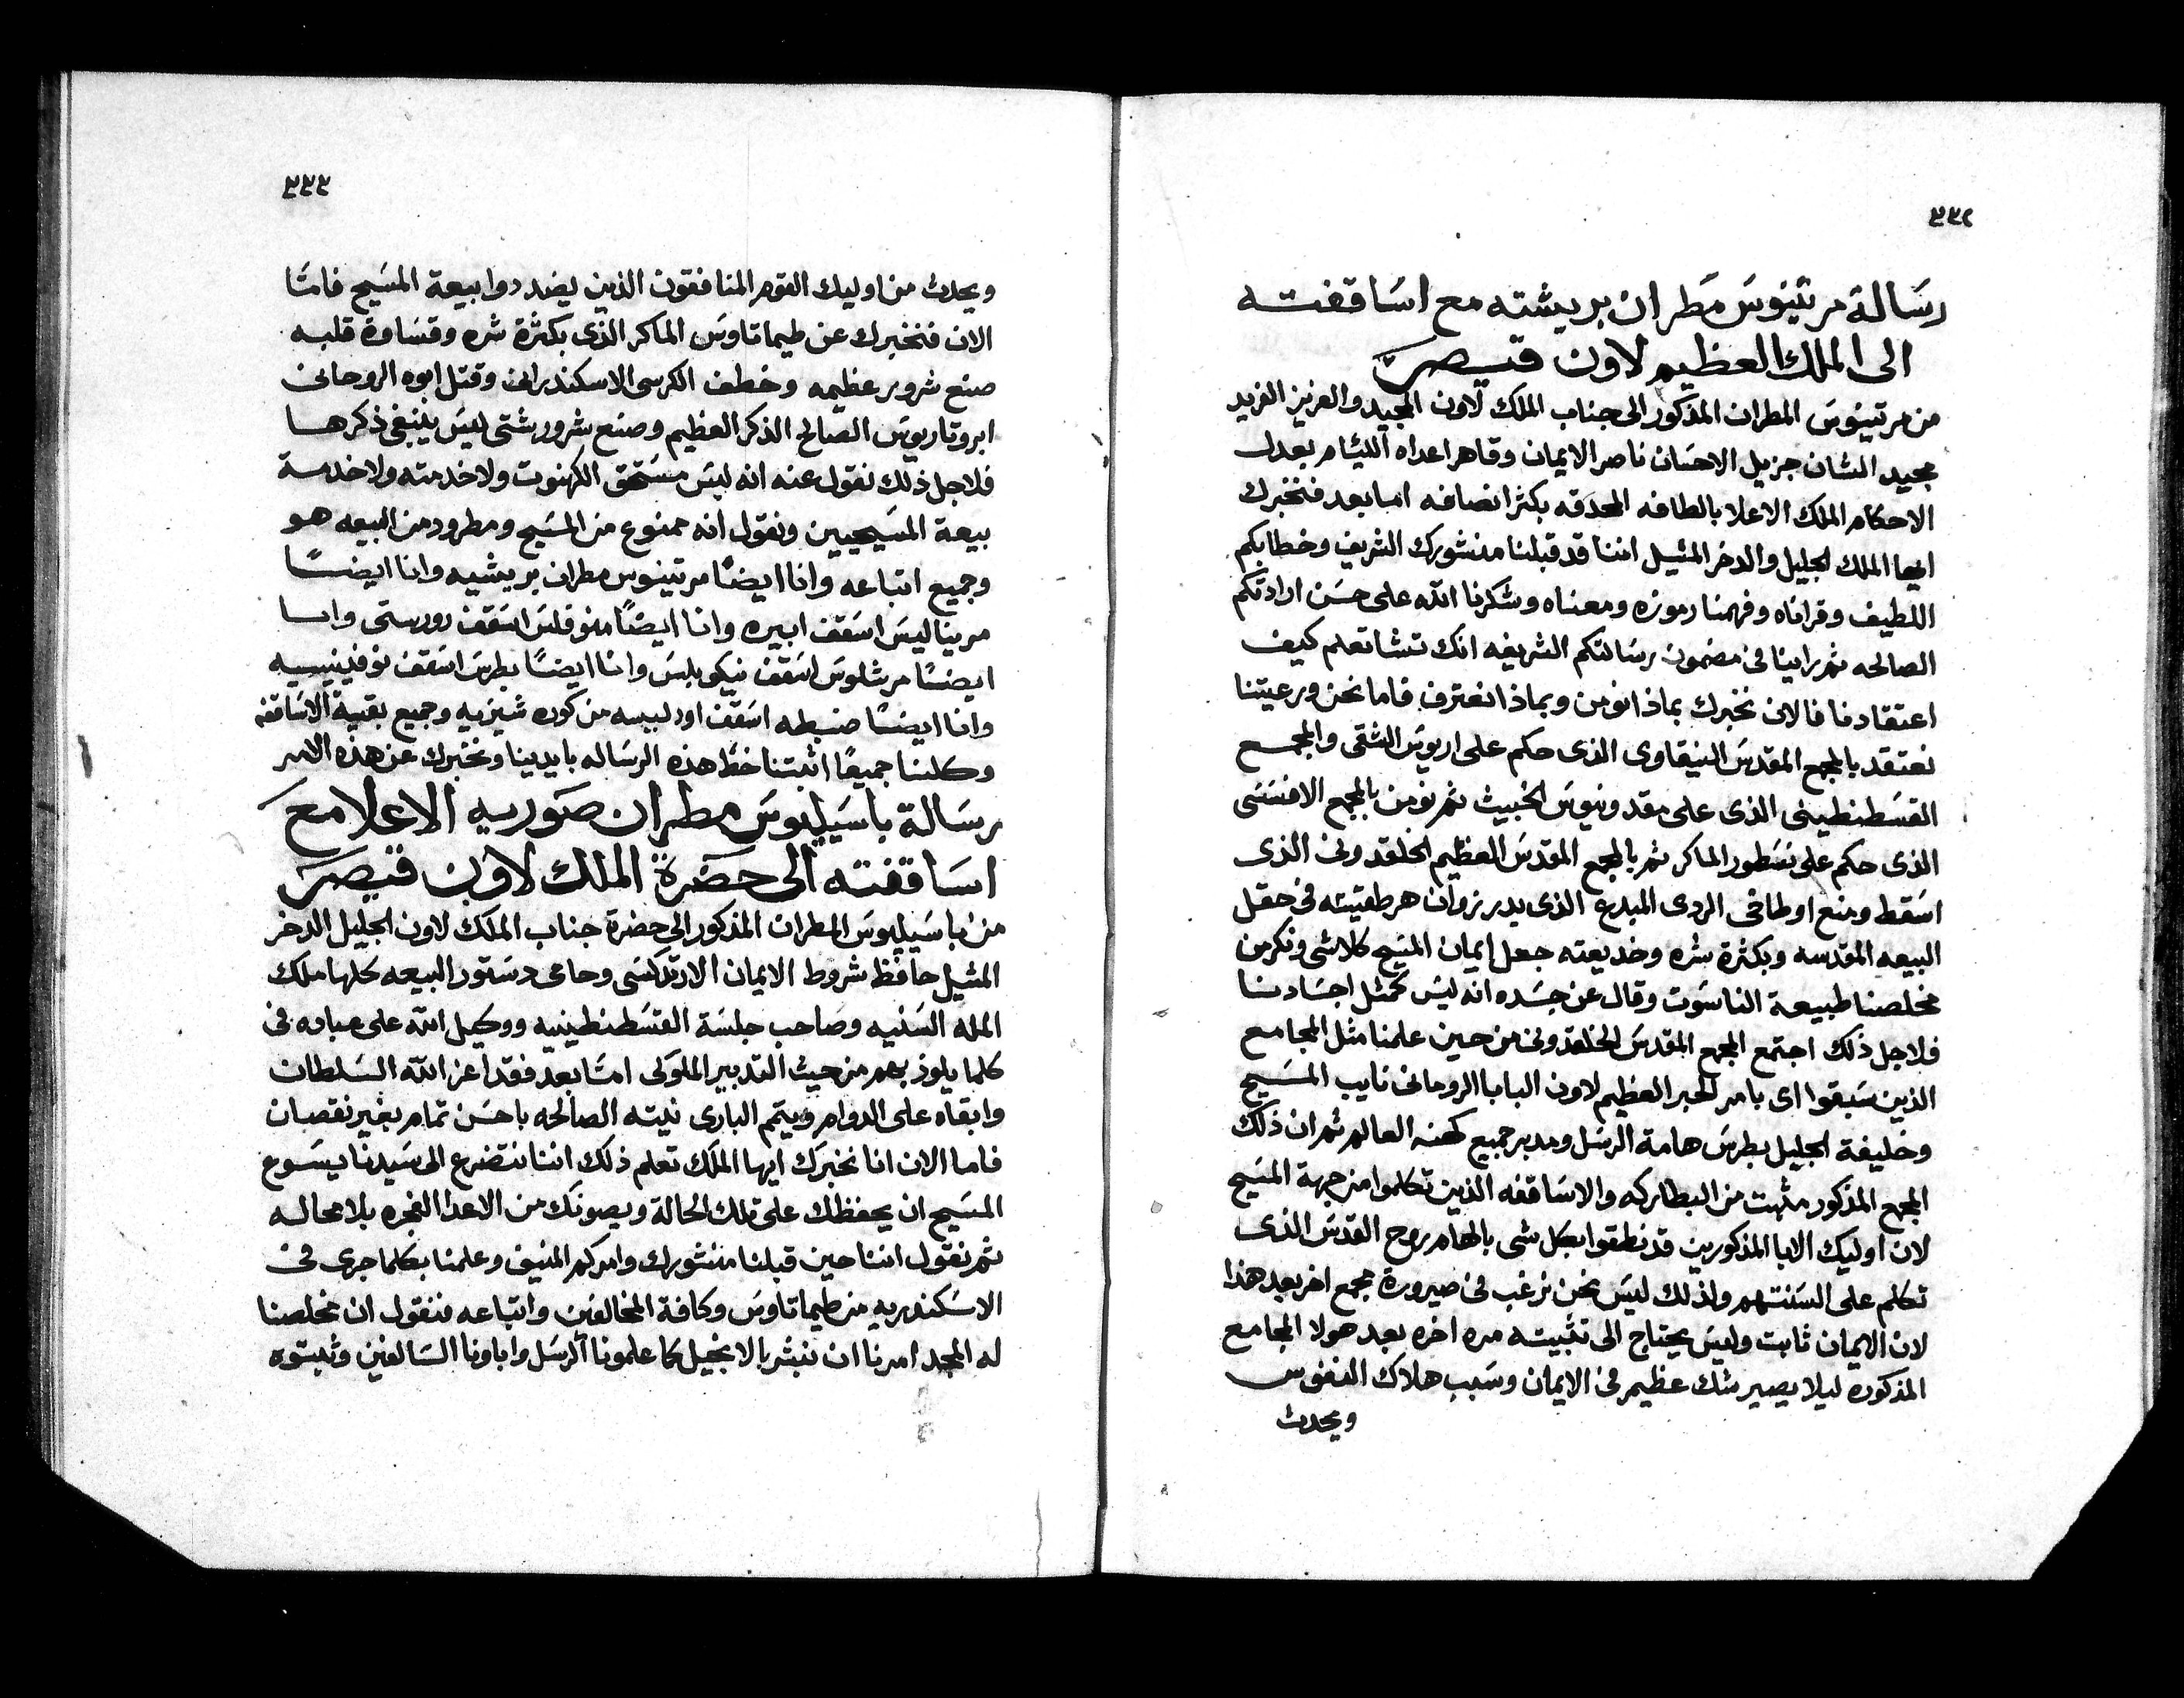 ٣٣٢
رسالة مرتينوس مطران بريشته مع اساقفته
الى الملك العظيم لاون قيصر
من مرتينوس المطران المذكور الى جناب الملك لاون المجيد والعزيز الفريد
مجيد الشان جزيل الاحسان ناصر الايمان وقاهر اعداه الليام بعدل
الاحكام الملك الاعلا بالطافه المحدقه بكثر انصافه اما بعد فنخبرك
ايها الملك الجليل والدخر المثيل اننا قد قبلنا منشورك الشريف وخطابكم
اللطيف وقراناه وفهمنا رموزه ومعناه وشكرنا الله على حسن ارادتكم
الصالحه ثم راينا فى مضمون رسالتكم الشريفه انك تشا تعلم كيف
اعتقادنا فالان نخبرك بماذا نومن وبماذا نعترف فاما نحن ورعيتنا
نعتقد بالمجمع المقدس النيقاوى الذى حكم على اريوس الشقى والمجمع
القسطنطينى الذى على مقدونيوس الخبيث ثم نومن بالمجمع الافسسى
الذى حكم على نسطور الماكر ثم بالمجمع المقدس العظيم الخلقدونى الذى
اسقط ومنع اوطاخى الردى المبدع الذى يدبر زوان هرطقيته فى حقل
البيعه المقدسه وبكثرة شره وخديعته جعل ايمان المسيح كلاشى ونكر من
مخلصنا طبيعة الناسوت وقال عن جسده انه ليس كمثل اجسادنا
فلاجل ذلك اجتمع المجمع المقدس الخلقدونى من حين علمنا مثل المجامع
الذين سبقوا اى بامر الحبر العظيم لاون البابا الروحانى نايب المسيح
وخليفة الجليل بطرس هامة الرسل ومدبر جميع كهنه العالم ثم ان ذلك
المجمع المذكور مثبت من البطاركه والاساقفه الذين تكلموا من جهة المسيح
لان اوليك الابا المذكورين قد نطقوا بكل شى بالهام روح القدس الذى
تكلم على السنتهم واذلك ليس نحن نرغب فى صيرورة مجمع اخر بعد هذا
لان الايمان ثابت وليس يحتاج الى تثبيته مره اخره بعد هولا المجامع
المذكوره ليلا يصير شك عظيم فى الايمان وسبب هلاك النفوس
ويحدث
٣٣٣
ويحدث من اوليك القوم المنافقون الذين يضددوا بيعة المسيح فامّا
الان فنخبرك عن طيماتاوس الماكر الذى بكثرة شره وقساوة قلبه
صنع شرور عظيمه وخطف الكرسى الاسكندرانى وقتل ابوه الروحانى
ابروتاريوس الصالح الذكر العظيم وصنع شرور شتى ليس ينبغى ذكرها
فلاجل ذلك نقول عنه انه ليس مستحق الكهنوت ولا خدمته ولا خدمة
بيعة المسيحيين ونقول انه ممنوع من المسيح ومطرود من البيعه هو
وجميع اتباعه وانا ايضًا مرتينوس مطران بريشيه وانا ايضًا
مريناليس اسقف ابيره وانا ايضًا منوفلس اسقف رورستى وانا
ايضًا مرشلوس اسقف نيكوبلس وانا ايضًا بطرس اسقف نوفينيسيه
وانا ايضًا ضبطه اسقف اودلبيسه من كوره شيزيه وجميع بقية الاساقفه
وكلنا جميعًا اثبتنا خط هذه الرساله بايدينا ونخبرك عن هذه الامر
رسالة باسيليوس مطران صوريه الاعلا مع
اساقفته الى حضرة الملك لاون قيصر
من باسيليوس المطران المذكور الى حضرة جناب الملك لاون الجليل الدخر
المثيل حافظ شروط الايمان الارتدكسى وحامى دستور البيعه كلها ملك
المله السنيه وصاحب جلسة القسطنطينيه ووكيل الله على عباده فى
كلما يلوذ بهم من حيث التدبير الملوكى امّا بعد فقد اعز الله السلطان
وابقاه على الدوام ويتمم البارى نيته الصالحه باحسن تمام بغير نقصان
فاما الان انا نخبرك ايها الملك تعلم ذلك اننا نتضرع الى سيدنا يسوع
المسيح ان يحفظك على تلك الحالة ويصونك من الاعدا الفجره بلا محاله
ثم نقول اننا حين قبلنا منشورك وامركم المنيف وعلمنا بكلما جرى فى
الاسكندريه من طيماتاوس وكافة المخالفين واتباعه فنقول ان مخلصنا
له المجد امرنا ان نبشر بالانجيل كما علمونا الرسل واباونا السالفين وثبتوه